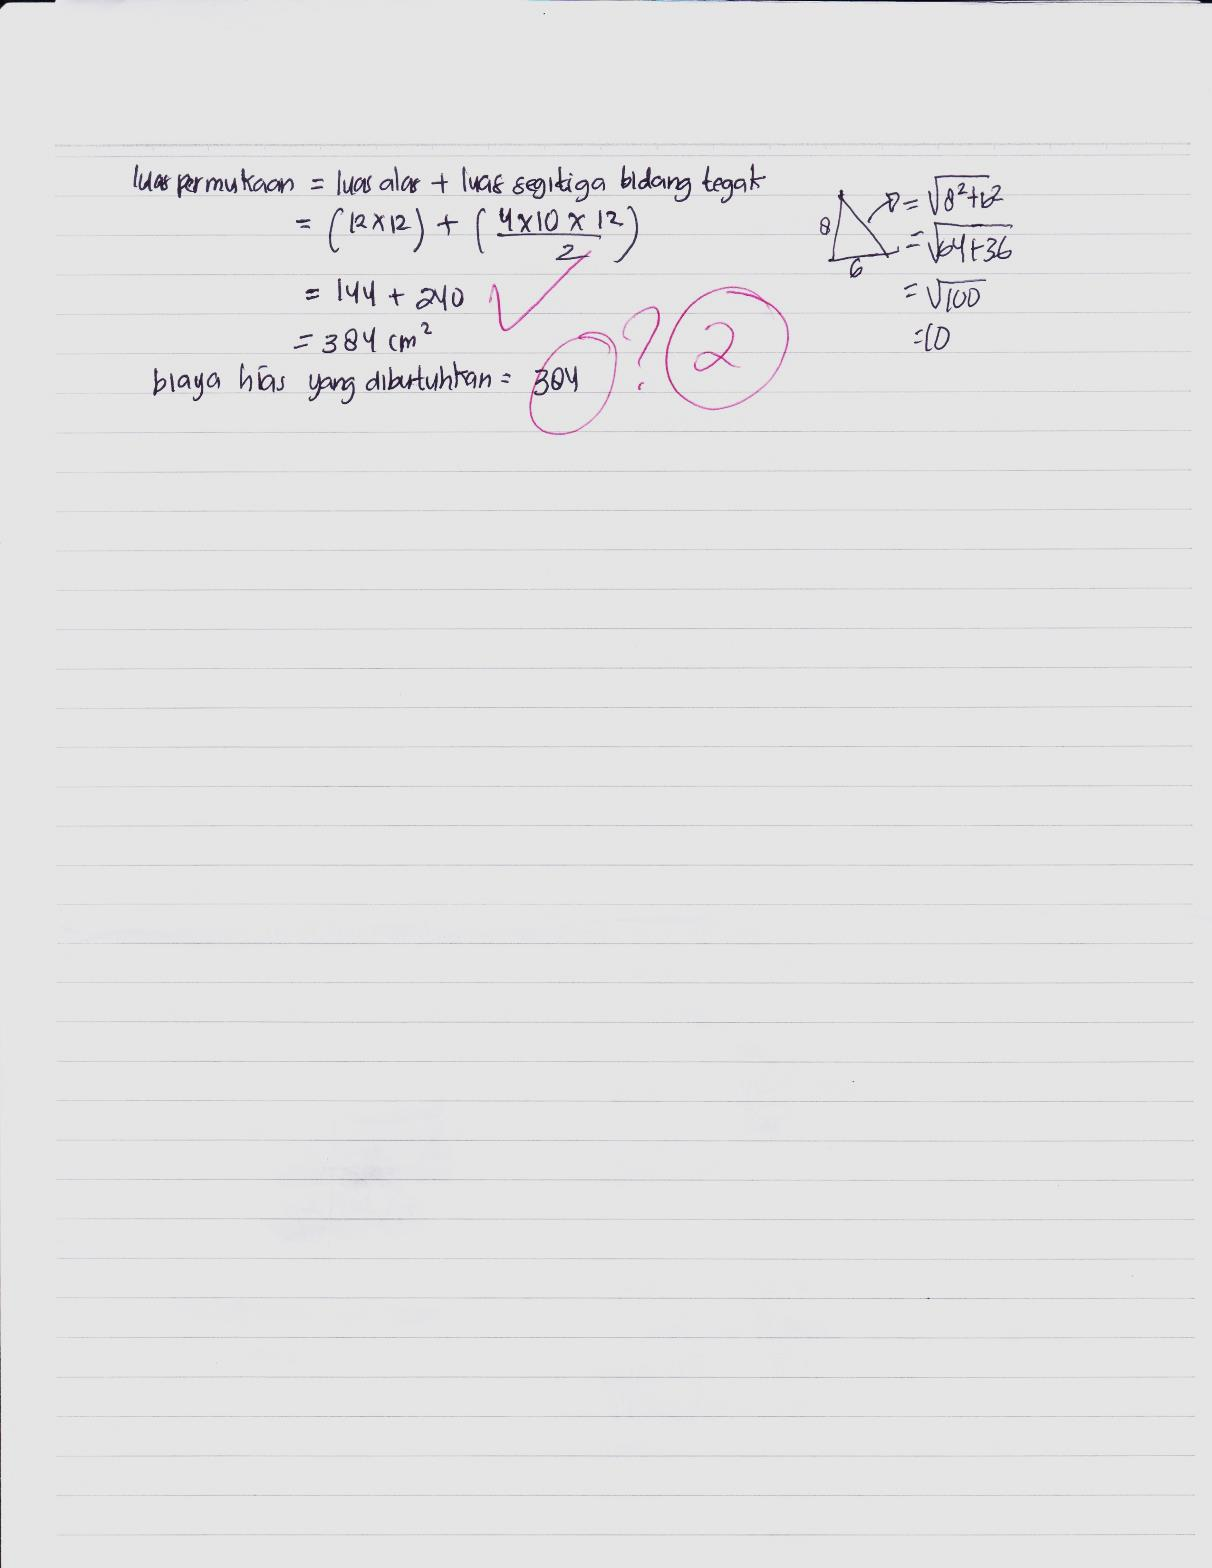 luas permukaan = luas alas + luas segitiga bidang tegak
= (12 x 12) + (4 x 10 x 12 / 2)
= 144 + 240
= 384 cm²
biaya hias yang dibutuhkan = 384
? 2
8
6
= √8²+6²
= √64+36
= √100
= 10